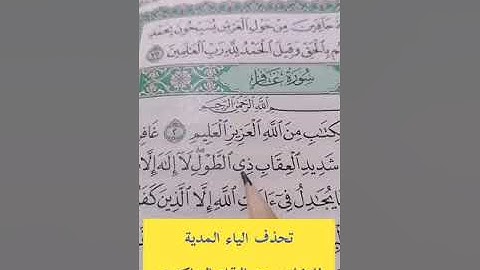 حَافِّينَ مِنْ حَوْلِ ٱلْعَرْشِ يُسَبِّحُونَ بِحَمْدِ
بِٱلْحَقِّ وَقِيلَ ٱلْحَمْدُ لِلَّهِ رَبِّ ٱلْعَٰلَمِينَ ٧٥
سُورَةُ غَافِرٍ
ٱللَّهِ ٱلرَّحْمَٰنِ ٱلرَّحِيمِ
ٱلْكِتَٰبِ مِنَ ٱللَّهِ ٱلْعَزِيزِ ٱلْعَلِيمِ ٢ غَافِرِ
شَدِيدِ ٱلْعِقَابِ ذِي ٱلطَّوْلِ لَآ إِلَٰهَ إِلَّا
مَا يُجَٰدِلُ فِيٓ ءَايَٰتِ ٱللَّهِ إِلَّا ٱلَّذِينَ كَفَرُ
تحذف الياء المدية